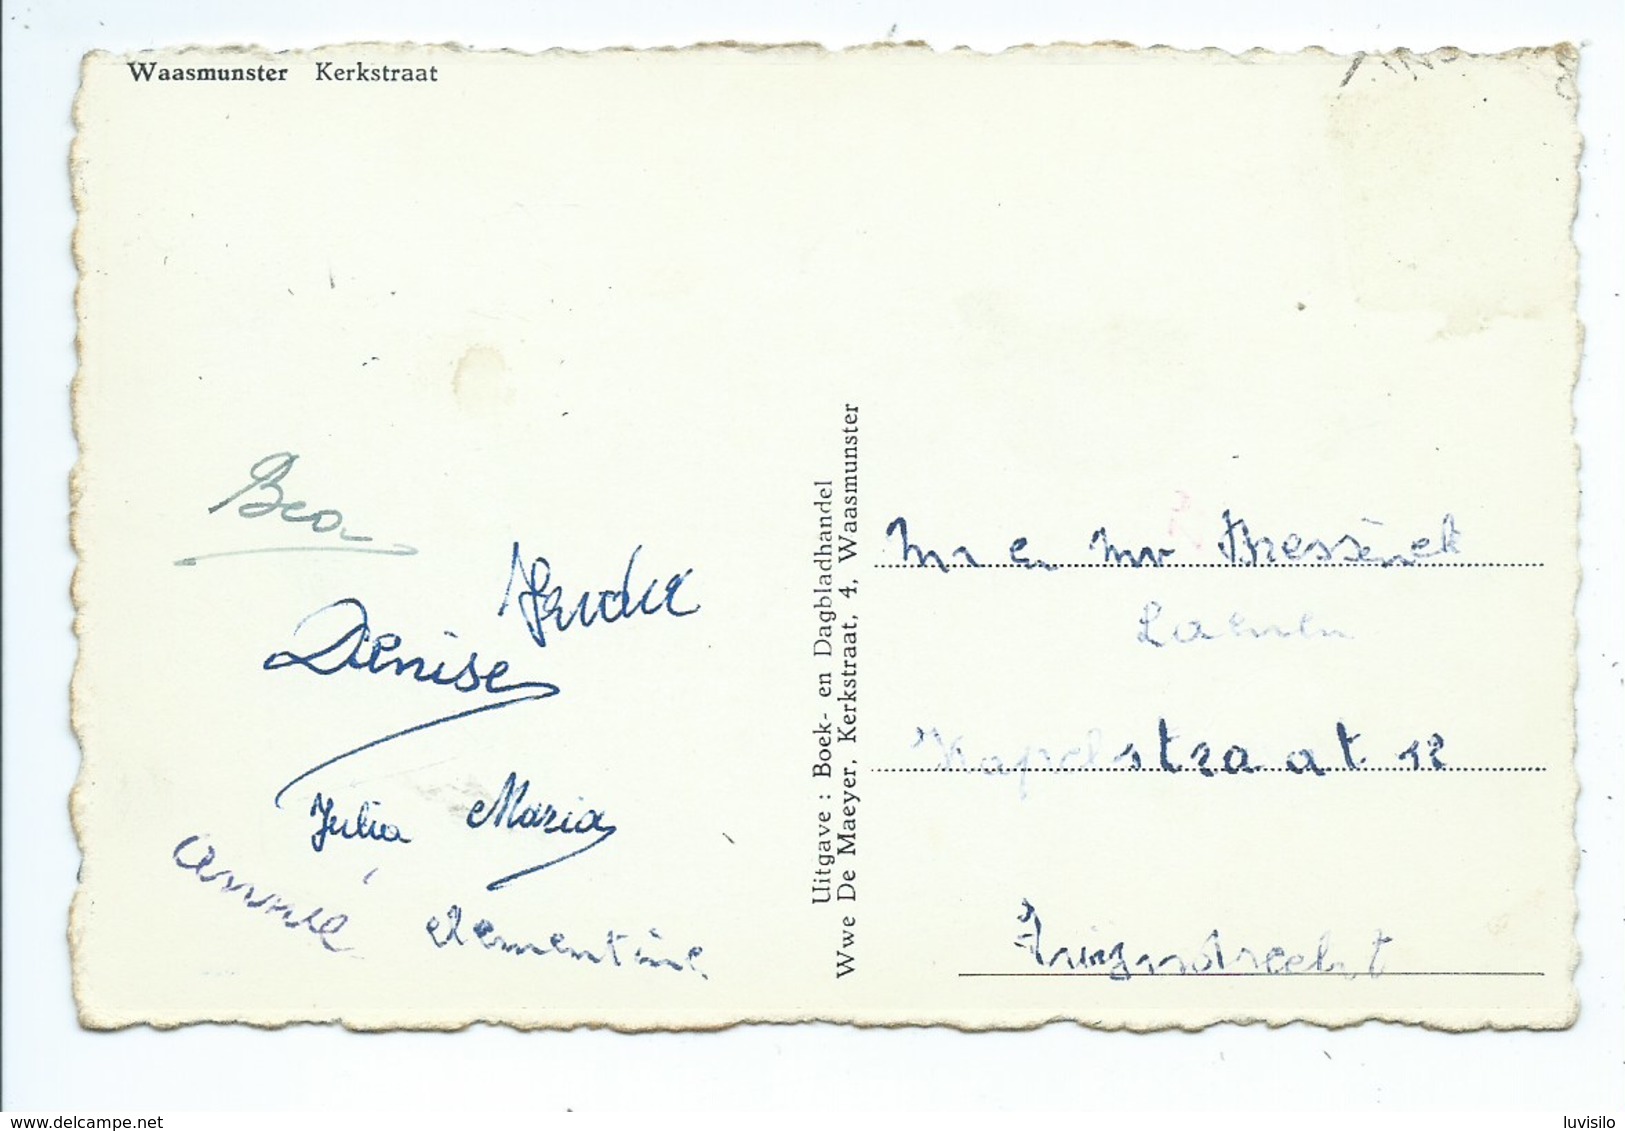 Waasmunster Kerkstraat
Bea
Denise
Julia Maria
Annie clementine
Uitgave : Boek- en Dagbladhandel
Wwe De Maeyer, Kerkstraat, 4, Waasmunster
Mr en Mv
Laenen
Kapelstraat 12
Zwijndrecht
www.delcampe.net
luvisilo